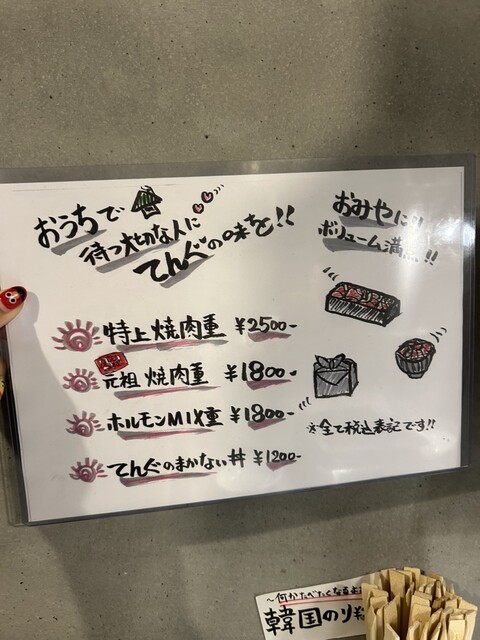 おうちで
待つ大切な人に
てんぐの味を!!
おみやに!!
ボリューム満点!!
特上焼肉重 ¥2500-
元祖焼肉重 ¥1800-
ホルモンMIX重 ¥1800-
てんぐのまかない丼 ¥1200-
※全て税込表記です!!
〜何かたべたくなる
韓国のり